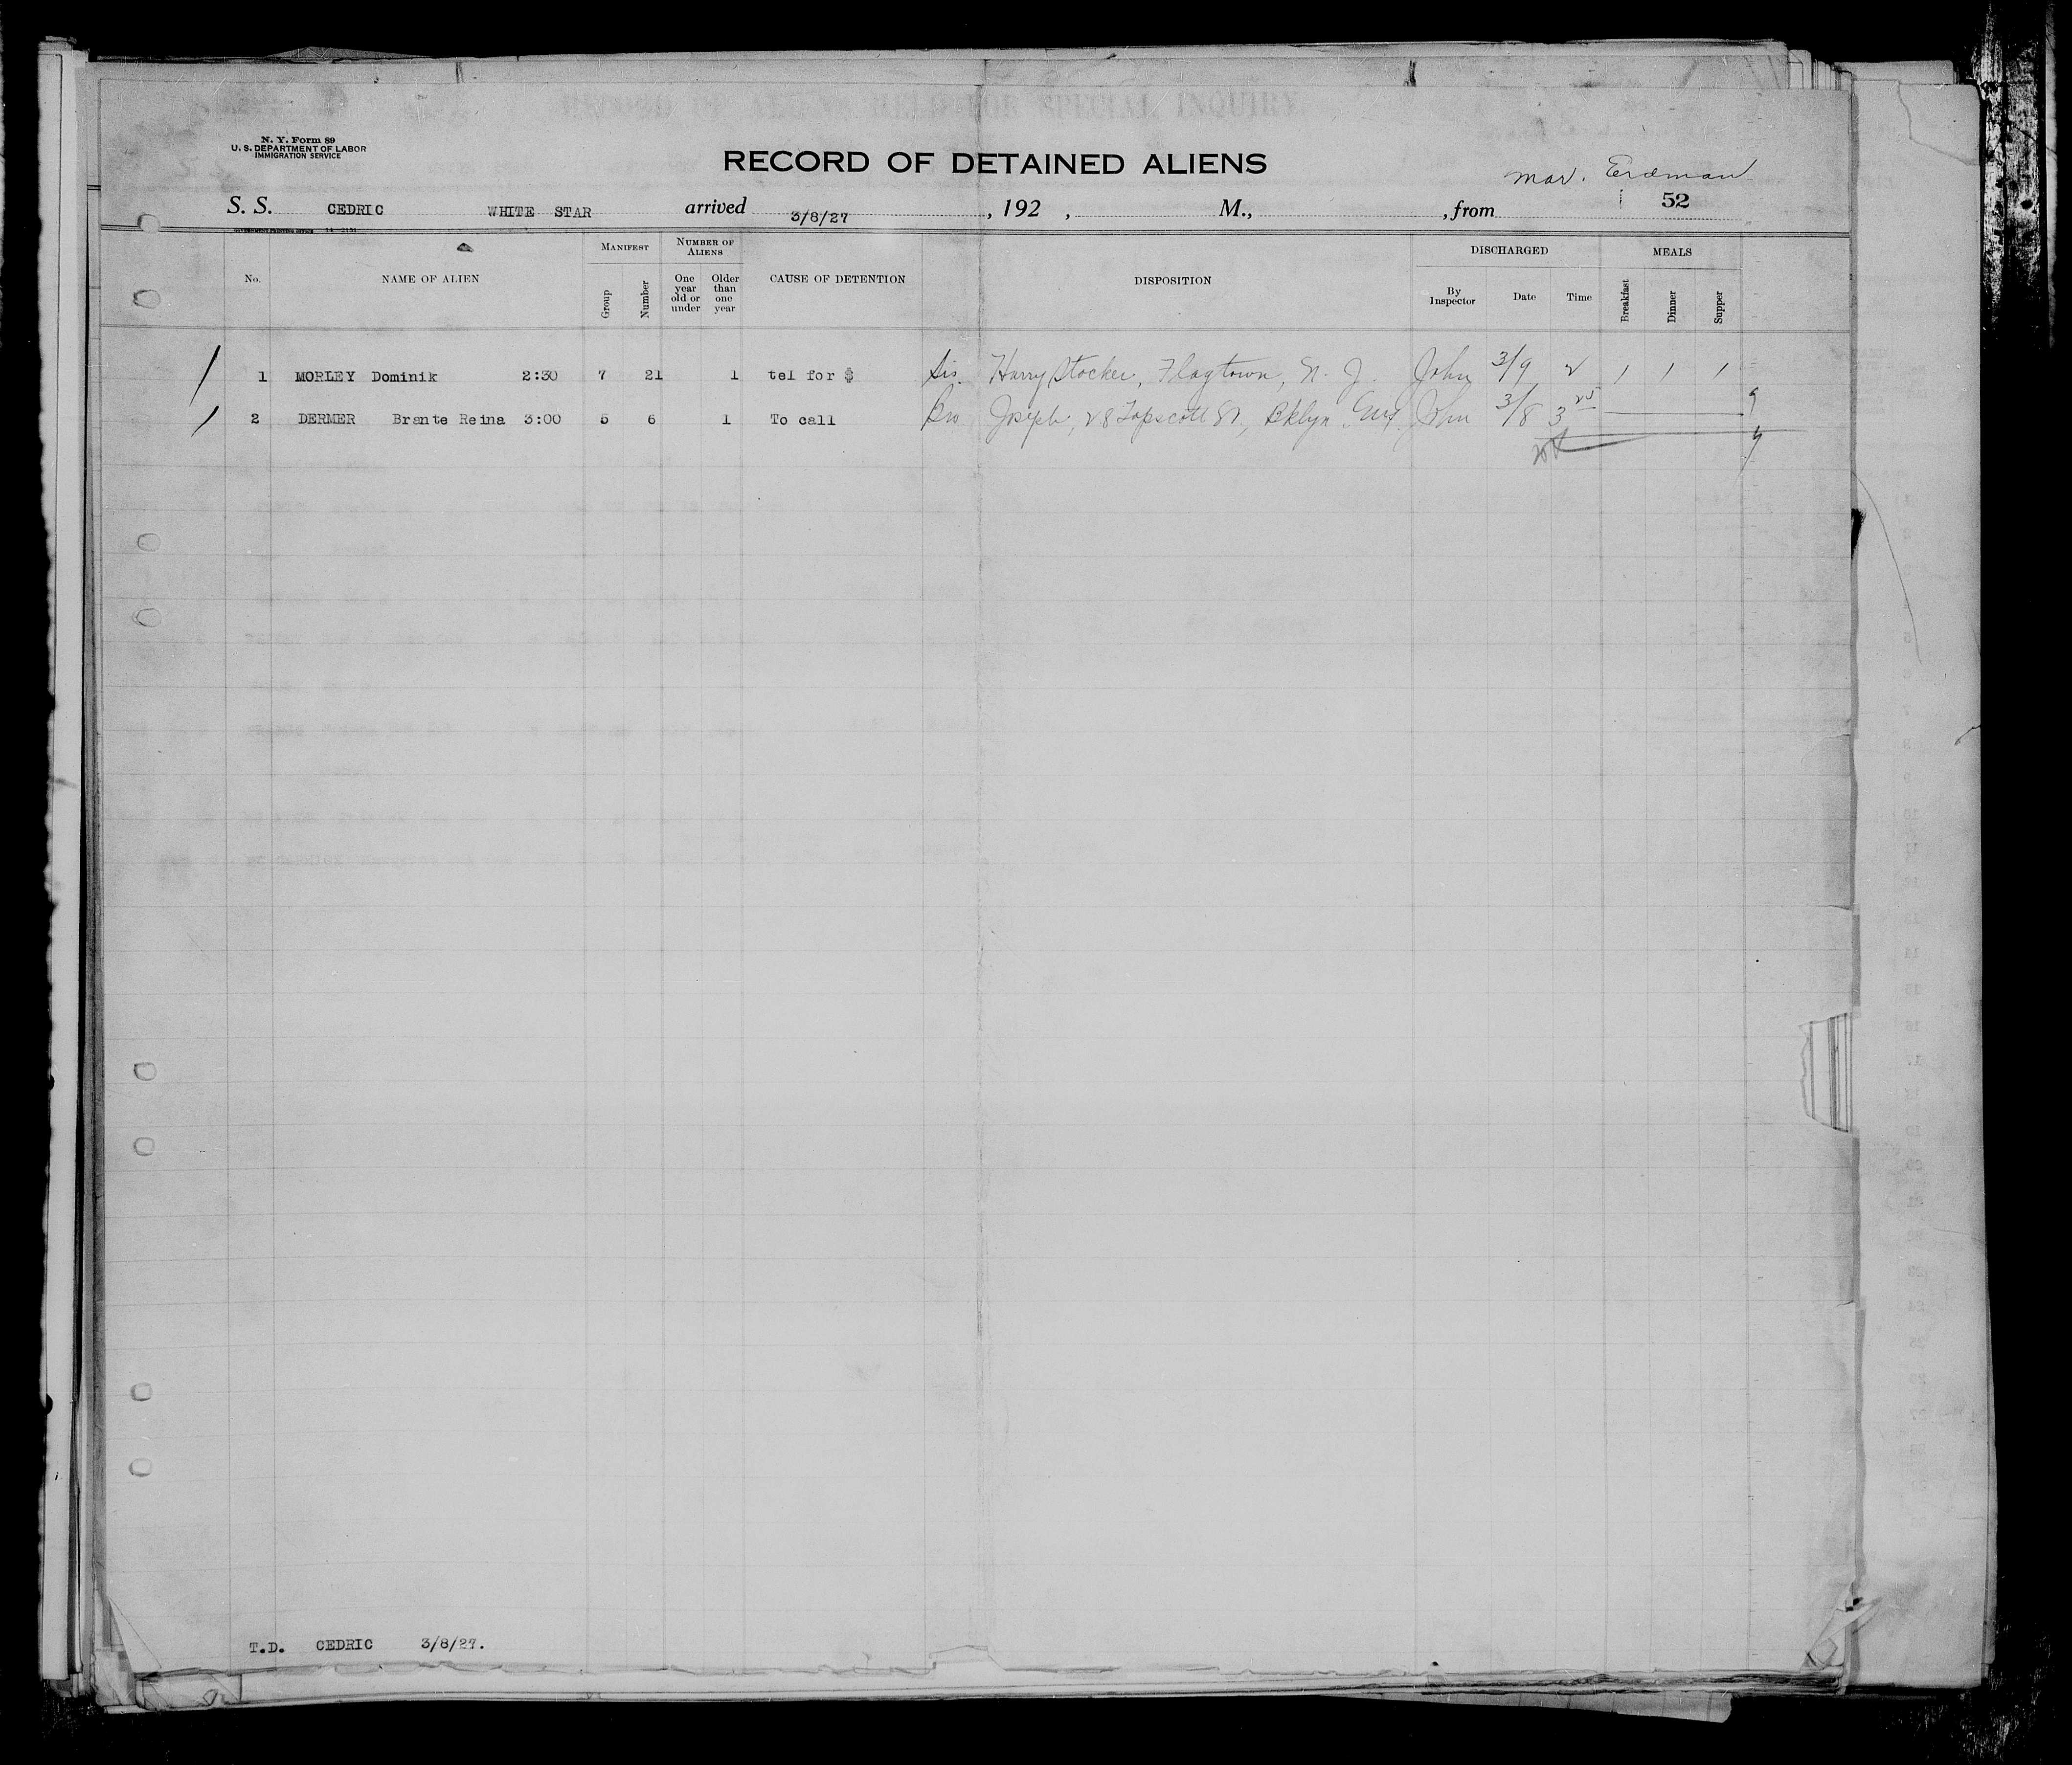 N. Y. Form 89
U. S. DEPARTMENT OF LABOR
IMMIGRATION SERVICE
RECORD OF DETAINED ALIENS
Mar. Erdman
S. S. CEDRIC WHITE STAR arrived 3/8/27, 192 , M., , from 52
GOVERNMENT PRINTING OFFICE 14-2151
No. NAME OF ALIEN MANIFEST Group Number NUMBER OF ALIENS One year old or under Older than one year CAUSE OF DETENTION DISPOSITION DISCHARGED By Inspector Date Time MEALS Breakfast Dinner Supper
/ 1 MORLEY Dominik 2:30 7 21 1 tel for $ Sis. Harry Stocker, Flagtown, N. J. John 3/9 2 1 1 1
/ 2 DERMER Brante Reina 3:00 5 6 1 To call Bro Joseph, 28 Tapscott St, Bklyn John 3/8 3 25
T.D. CEDRIC 3/8/27.
RECORD OF ALIENS HELD FOR SPECIAL INQUIRY